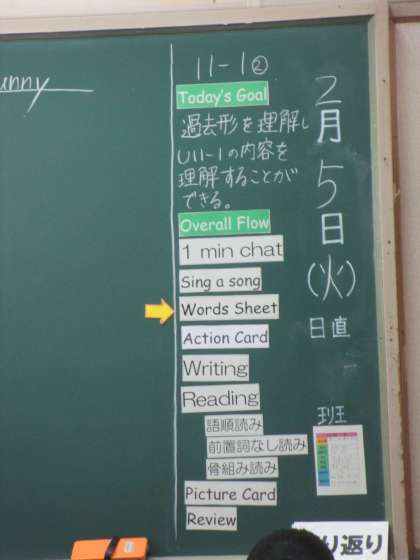 unny
11-1②
Today's Goal
過去形を理解し
U11-1の内容を
理解することが
できる。
Overall Flow
1 min chat
Sing a song
Words Sheet
Action Card
Writing
Reading
語順読み
前置詞なし読み
骨組み読み
Picture Card
Review
2月5日(火)
日直
班
り返り